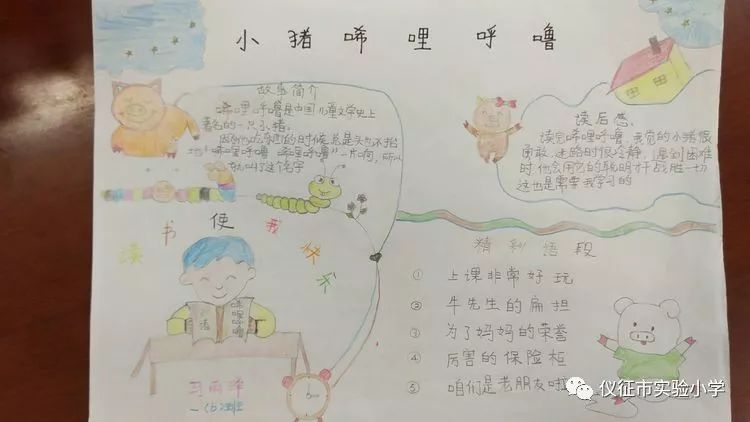 小猪唏哩呼噜
故事简介
唏哩呼噜是中国儿童文学史上
著名的一只小猪。
因他吃东西的时候总是头也不抬
地“唏哩呼噜 唏哩呼噜”一片响，所以
就叫了这个名字
读后感
读完唏哩呼噜，我觉的小猪很
勇敢，迷路时很冷静，遇到困难
时，他会用它的聪明才战胜一切
这也是需要我学习的
读书使我快乐
小猪
唏哩呼噜
精彩语段
① 上课非常好玩
② 牛先生的扁担
③ 为了妈妈的荣誉
④ 厉害的保险柜
⑤ 咱们是老朋友啦
一(6)班
仪征市实验小学